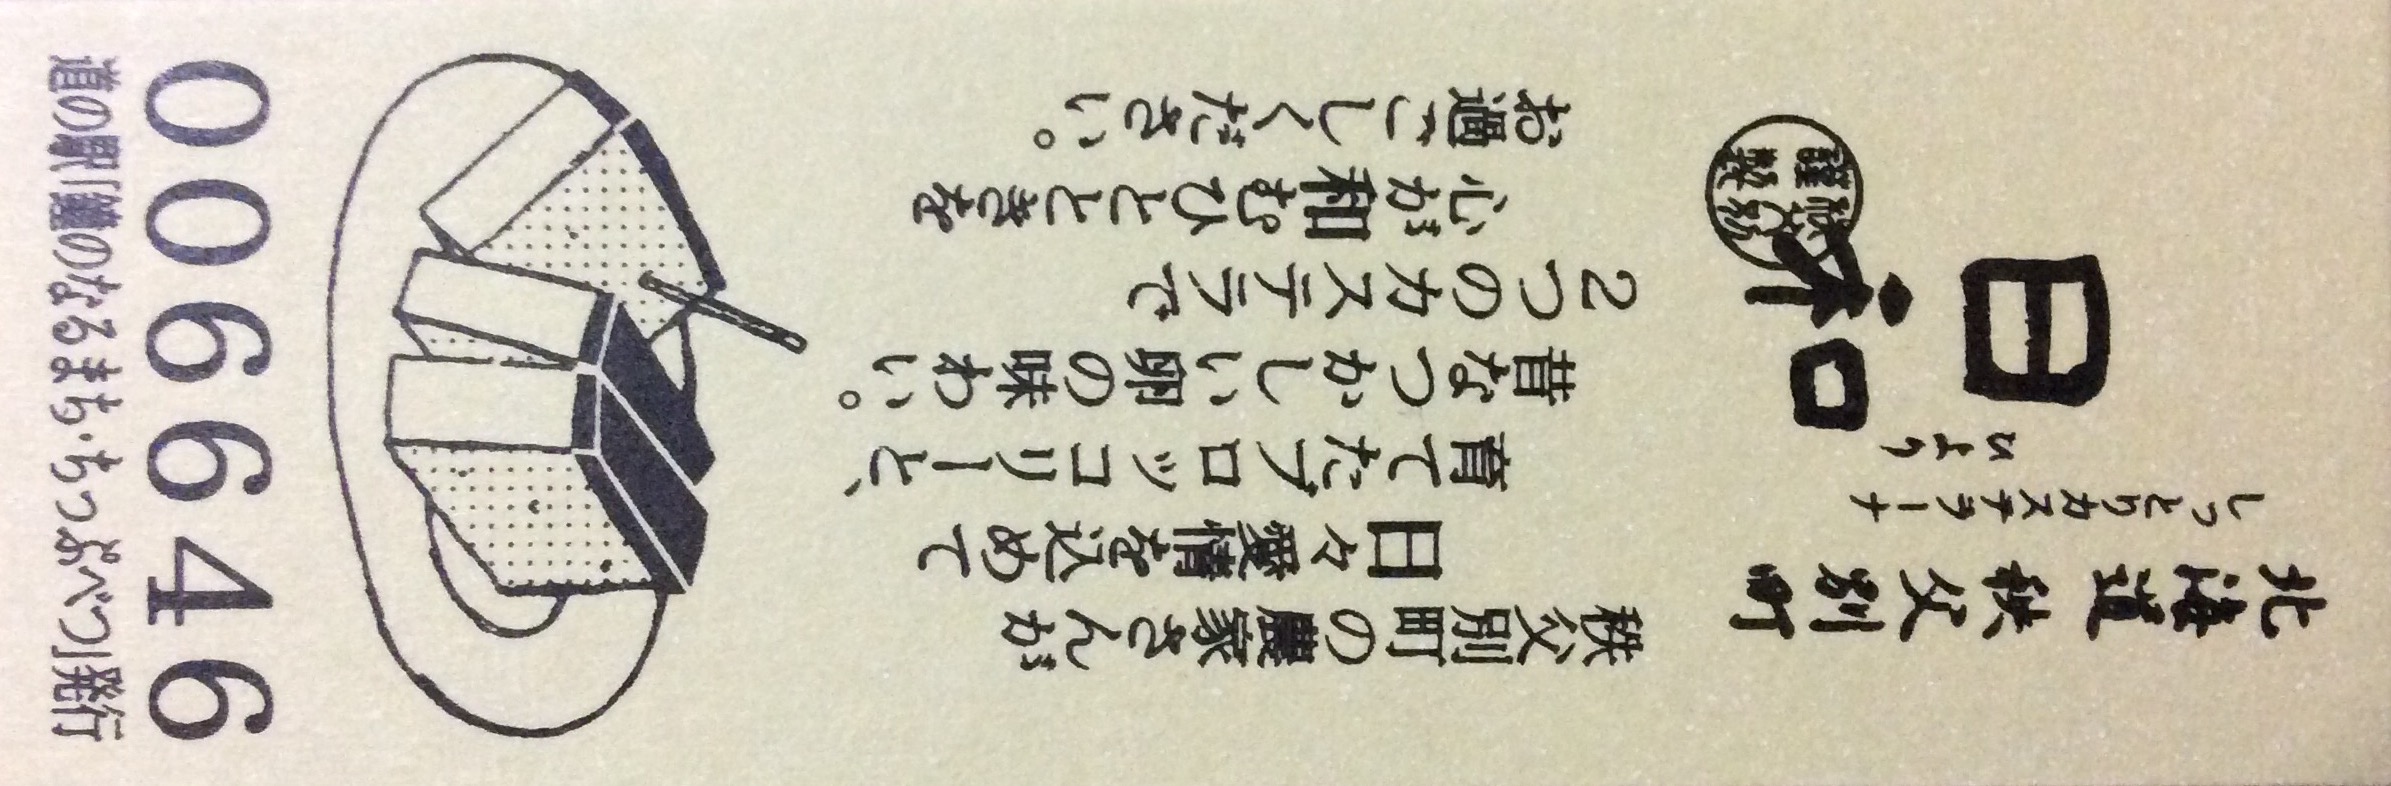 北海道秩父別町
しっとりカステラーナ
ひより
日和
秩父別
謹製
秩父別町の農家さんが
日々愛情を込めて
育てたブロッコリーと、
昔なつかしい卵の味わい。
2つのカステラで
心が和むひとときを
お過ごしください。
006646
道の駅「鐘のなるまち・ちっぷべつ」発行